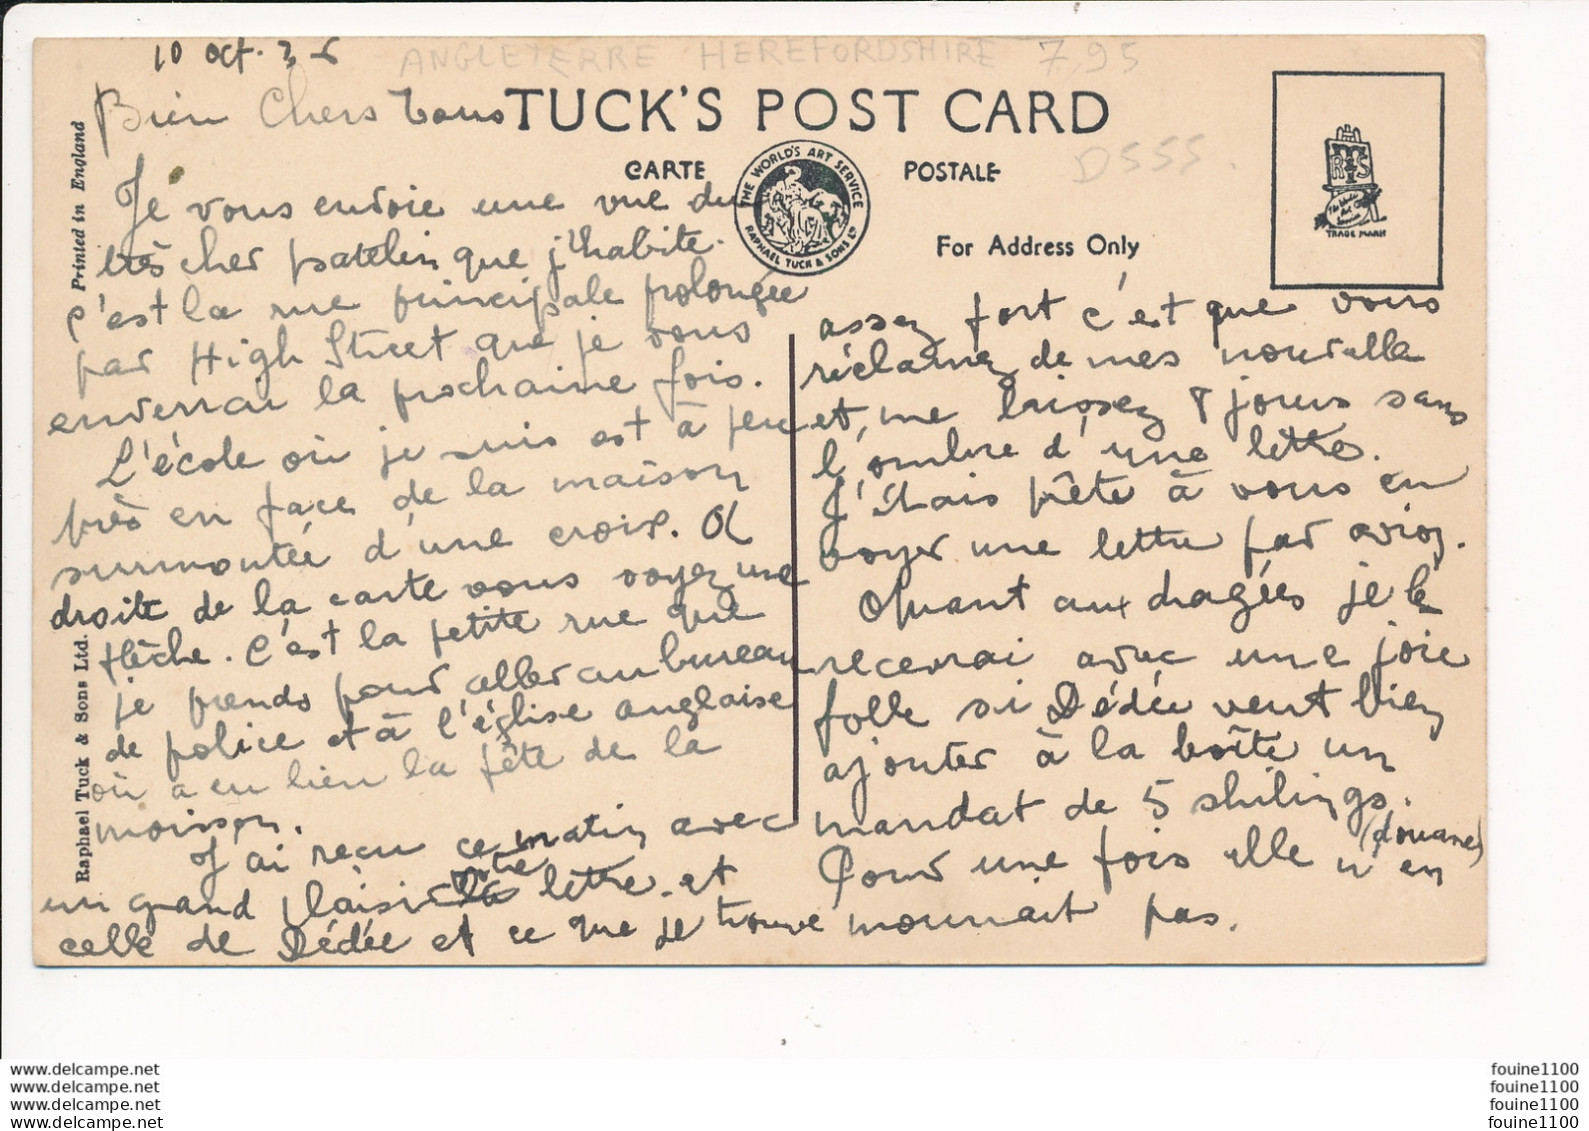 10 oct. 36
ANGLETERRE HEREFORDSHIRE 7,95
Bien Chers Tous
TUCK'S POST CARD
CARTE POSTALE
D555.
THE WORLD'S ART SERVICE
RAPHAEL TUCK & SONS LTD
For Address Only
R S
TRADE MARK
Printed in England
Raphael Tuck & Sons Ltd.
Je vous envoie une vue du
très cher patelin que j'habite.
C'est la rue principale prolongée
par High Street que je vous
enverrai la prochaine fois.
L'école où je suis est à peu
près en face de la maison
surmontée d'une croix. A
droite de la carte vous voyez une
flèche. C'est la petite rue que
je prends pour aller au bureau
de police et à l'église anglaise
où a eu lieu la fête de la
moisson.
J'ai reçu ce matin avec
un grand plaisir votre lettre et
celle de Dédée et ce que je trouve
assez fort c'est que vous
réclamez de mes nouvelle
et, me laissez 8 jours sans
l'ombre d'une lettre.
J'étais prête à vous en
voyer une lettre par avion.
Quant aux dragées je le
recevrai avec une joie
folle si Dédée veut bien
ajouter à la boîte un
mandat de 5 shilings.
(douane)
Pour une fois elle n'en
mourrait pas.
www.delcampe.net
www.delcampe.net
www.delcampe.net
www.delcampe.net
fouine1100
fouine1100
fouine1100
fouine1100